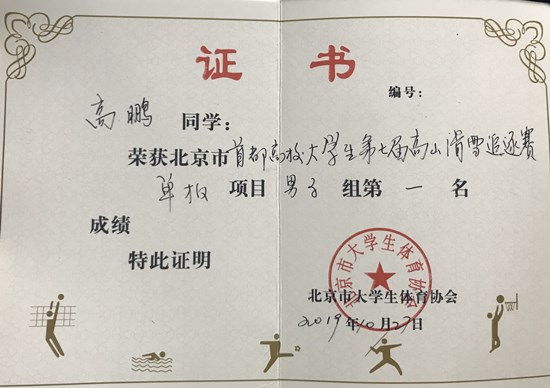 证书
编号：
高鹏 同学：
荣获北京市首都高校大学生第七届高山滑雪追逐赛
单板 项目 男子 组第 一 名
成绩
特此证明
北京市大学生体育协会
北京市大学生体育协会
2019年10月27日